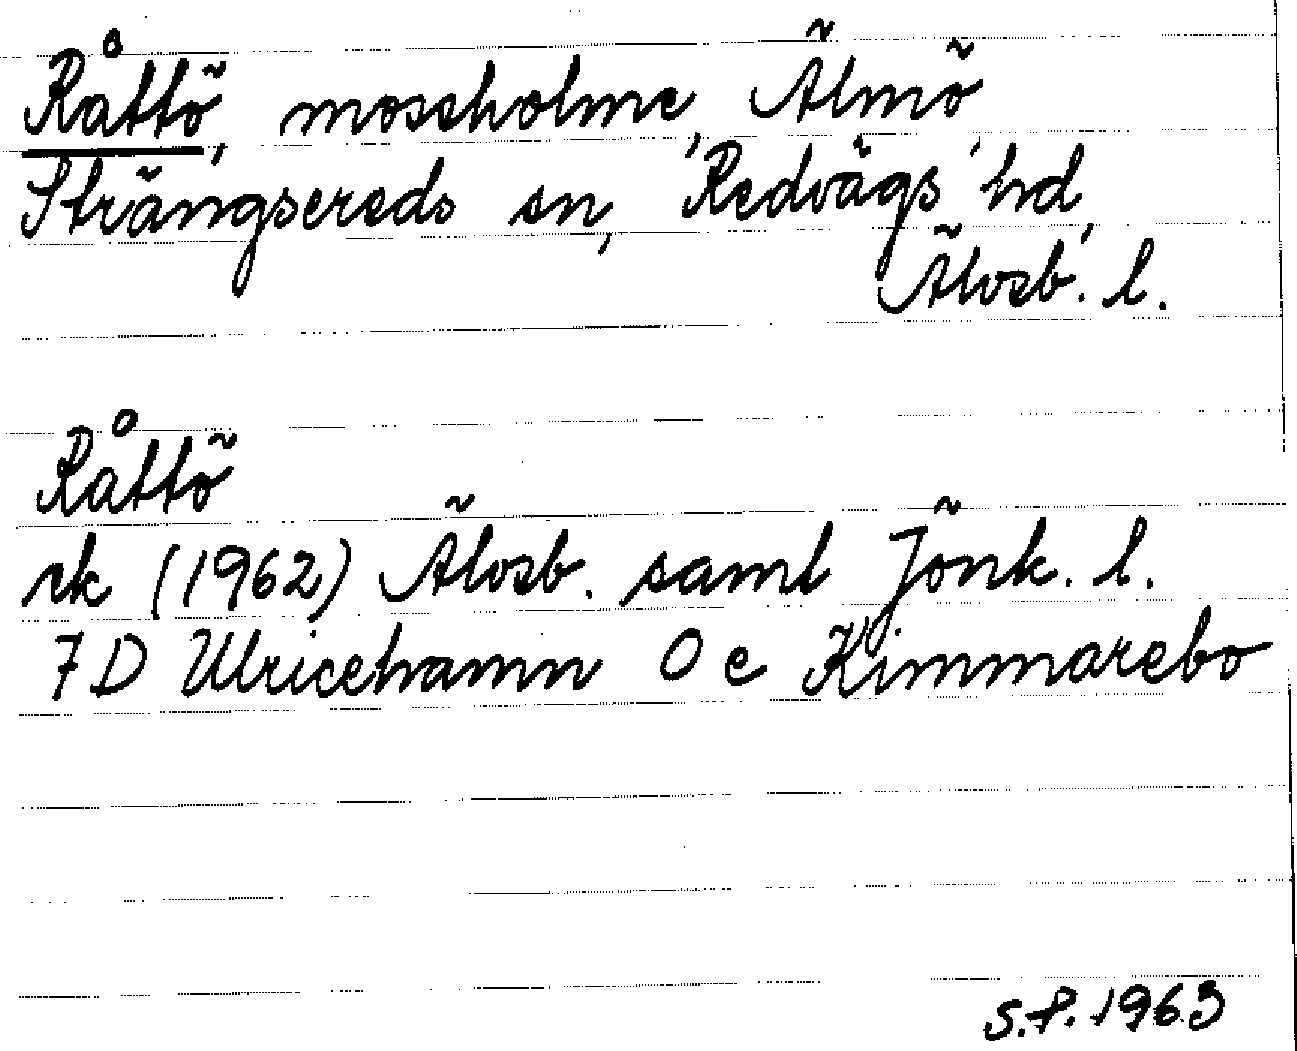 Råttö, mosseholme, Älmö,
Strängsereds sn, Redvägs hd,
Älvsb. l.
Råttö
rk (1962) Älvsb. saml Jönk. l.
7 D Ulricehamn 0 e Kimmarebo
S.P. 1963